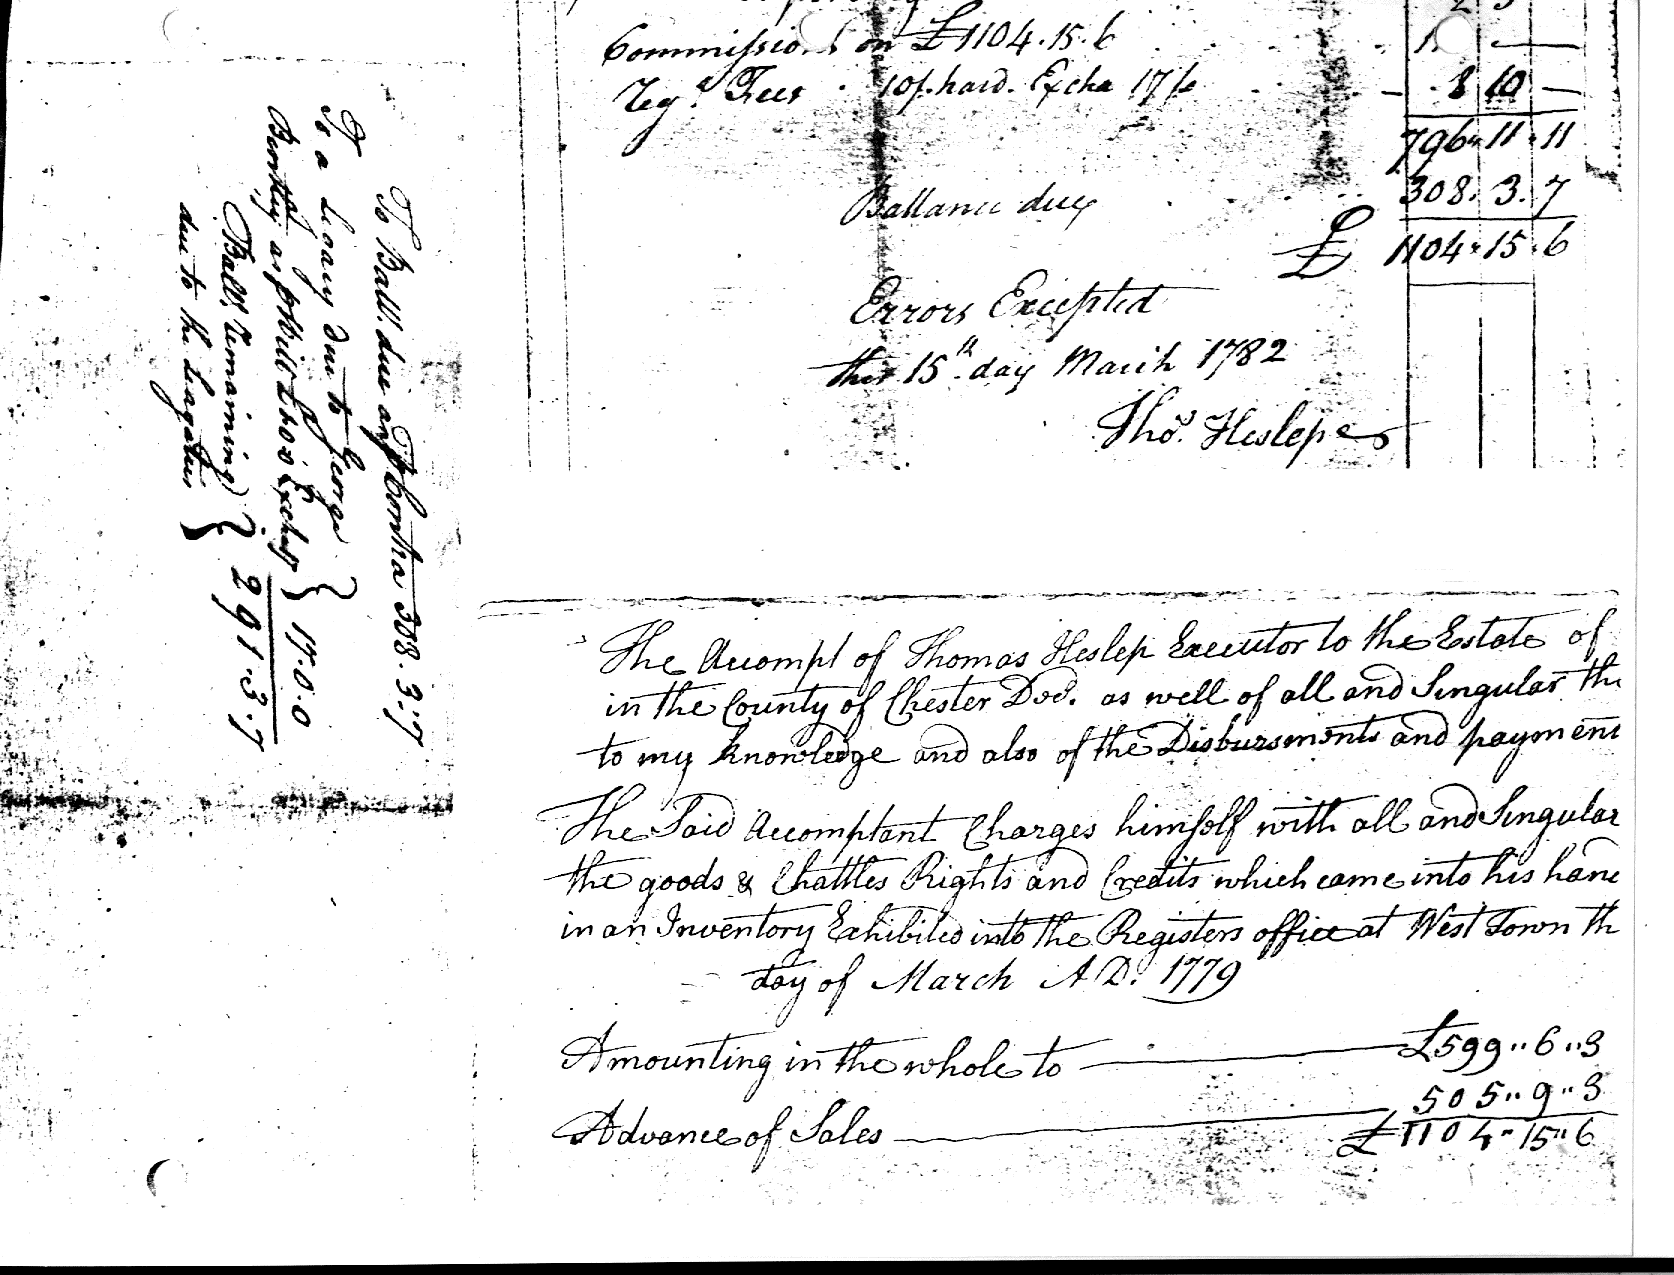 Commissions on £1104.15.6
Regr. Fees 10/. hard. Excha 17/6 8 10 —
796 " 11 " 11
Ballance due 308. 3. 7
£ 1104 " 15 " 6
Errors Excepted
this 15th. day March 1782
Thos. Heslep
To Ball. due as pr Contra 308. 3. 7
To a Legacy due to George
Bentley as pr Will £60 Exchg } 17. 0. 0
Ball. remaining
due to the Legatees } 291. 3. 7
The Accompt of Thomas Heslep Executor to the Estate of
in the County of Chester Decd. as well of all and Singular the
to my knowledge and also of the Disbursments and payment
The Said Accomptant Charges himself with all and Singular
the goods & Chattles Rights and Credits which came into his hand
in an Inventory Exhibited into the Registers office at West Town th
day of March A.D. 1779
Amounting in the whole to — £599 " 6 " 3
505 " 9 " 3
Advance of Sales — £1104 " 15 " 6